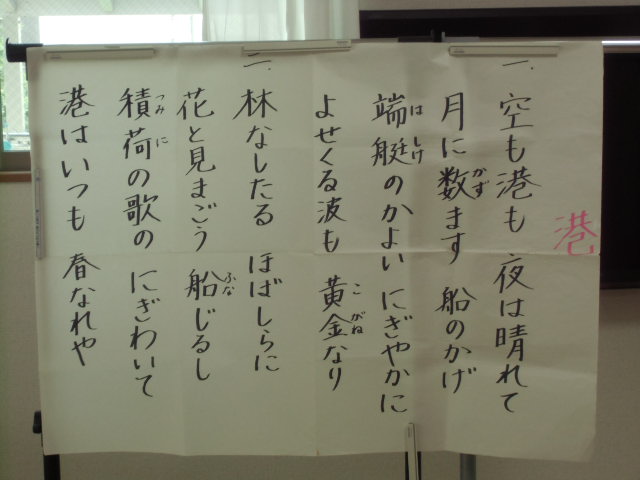 港
一. 空も港も 夜は晴れて
月に数(かず)ます 船のかげ
端艇(はしけ)のかよい にぎやかに
よせくる波も 黄金(こがね)なり
二. 林なしたる ほばしらに
花と見まごう 船(ふな)じるし
積荷(つみに)の歌の にぎわいて
港はいつも 春なれや